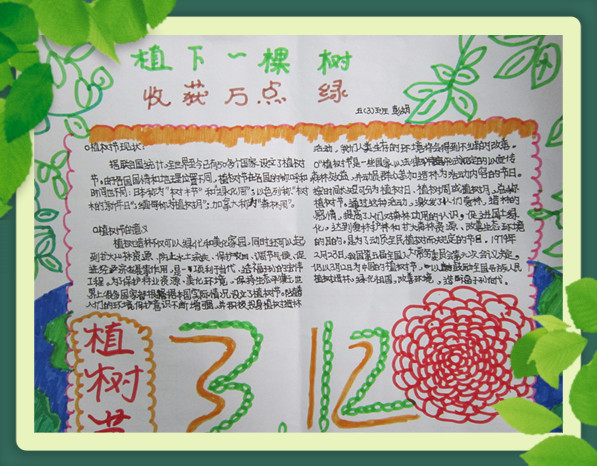 植下一棵树
收获万点绿
五(3)班
植树节现状:
据联合国统计,全世界至今已有50多个国家设立了植树
节。由于各国国情和地理位置不同,植树节在各国的称呼和
时间也不同,日本称为“树木节”和“绿化周”;以色列称“树木
的新年日”;缅甸称为植树月;加拿大称为“森林周”。
植树节的意义
植树造林不仅可以绿化和美化家园,同时还可以起
到扩大山林资源、防止水土流失、保护农田、调节气候、促
进经济发展等作用,是一项利于当代、造福子孙的宏伟
工程。为了保护林业资源,美化环境,保持生态平衡,世
界上很多国家都根据本国实际情况设立了植树节。
人们的环境保护意识不断增强,并积极投身植树造林
活动,我们人类生存的环境将会得到不断的改善。
植树节是一些国家以法律形式规定的以宣传
森林效益,并动员群众参加造林为活动内容的节日。
按时间长短可分为植树日、植树周或植树月,总称
植树节。通过这种活动,激发人们爱林、造林的
感情,提高人们对森林功用的认识,促进国土绿
化,达到爱林护林和扩大森林资源、改善生态环境
的目的。是为了动员全民植树而规定的节日。1979年
2月23日,我国第五届全国人大常务委员会第六次会议决定,
仍以3月12日为中国的植树节,以鼓励全国各族人民
植树造林,绿化祖国,改善环境,造福子孙后代。
植树节
3.12